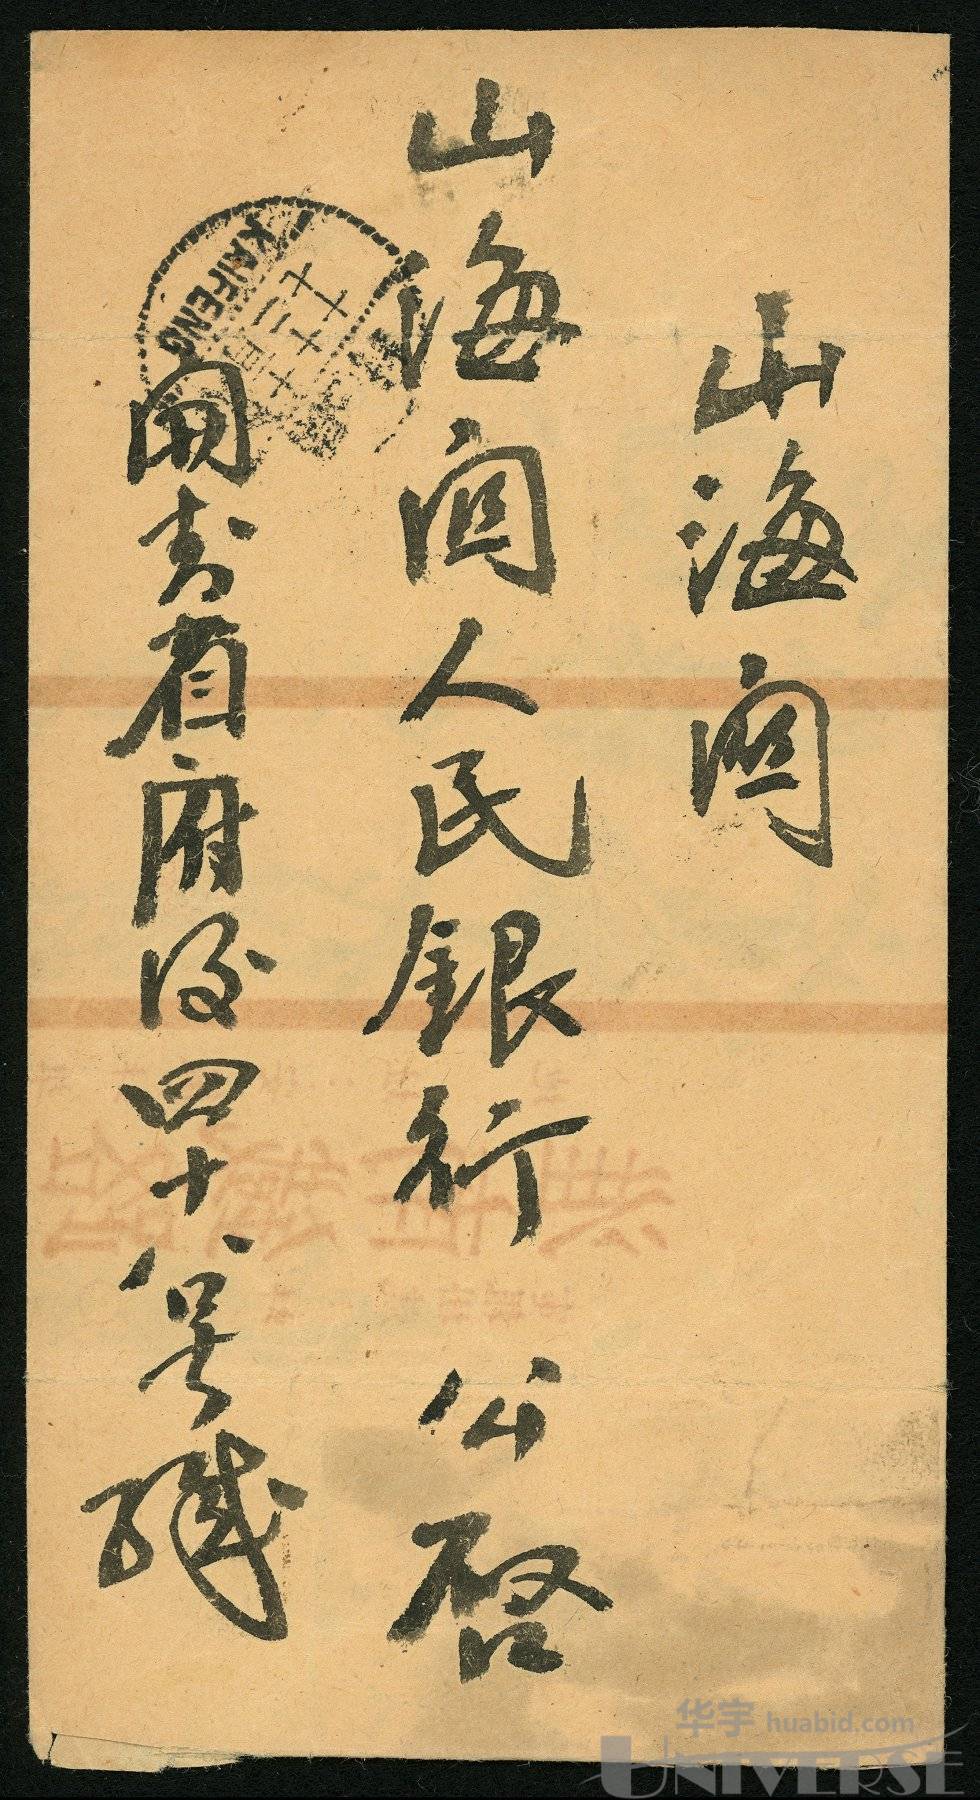 山海关
山海关人民銀行 公啓
開封省府后四十八号緘
KAIFENG
华宇 huabid.com
UNIVERSE